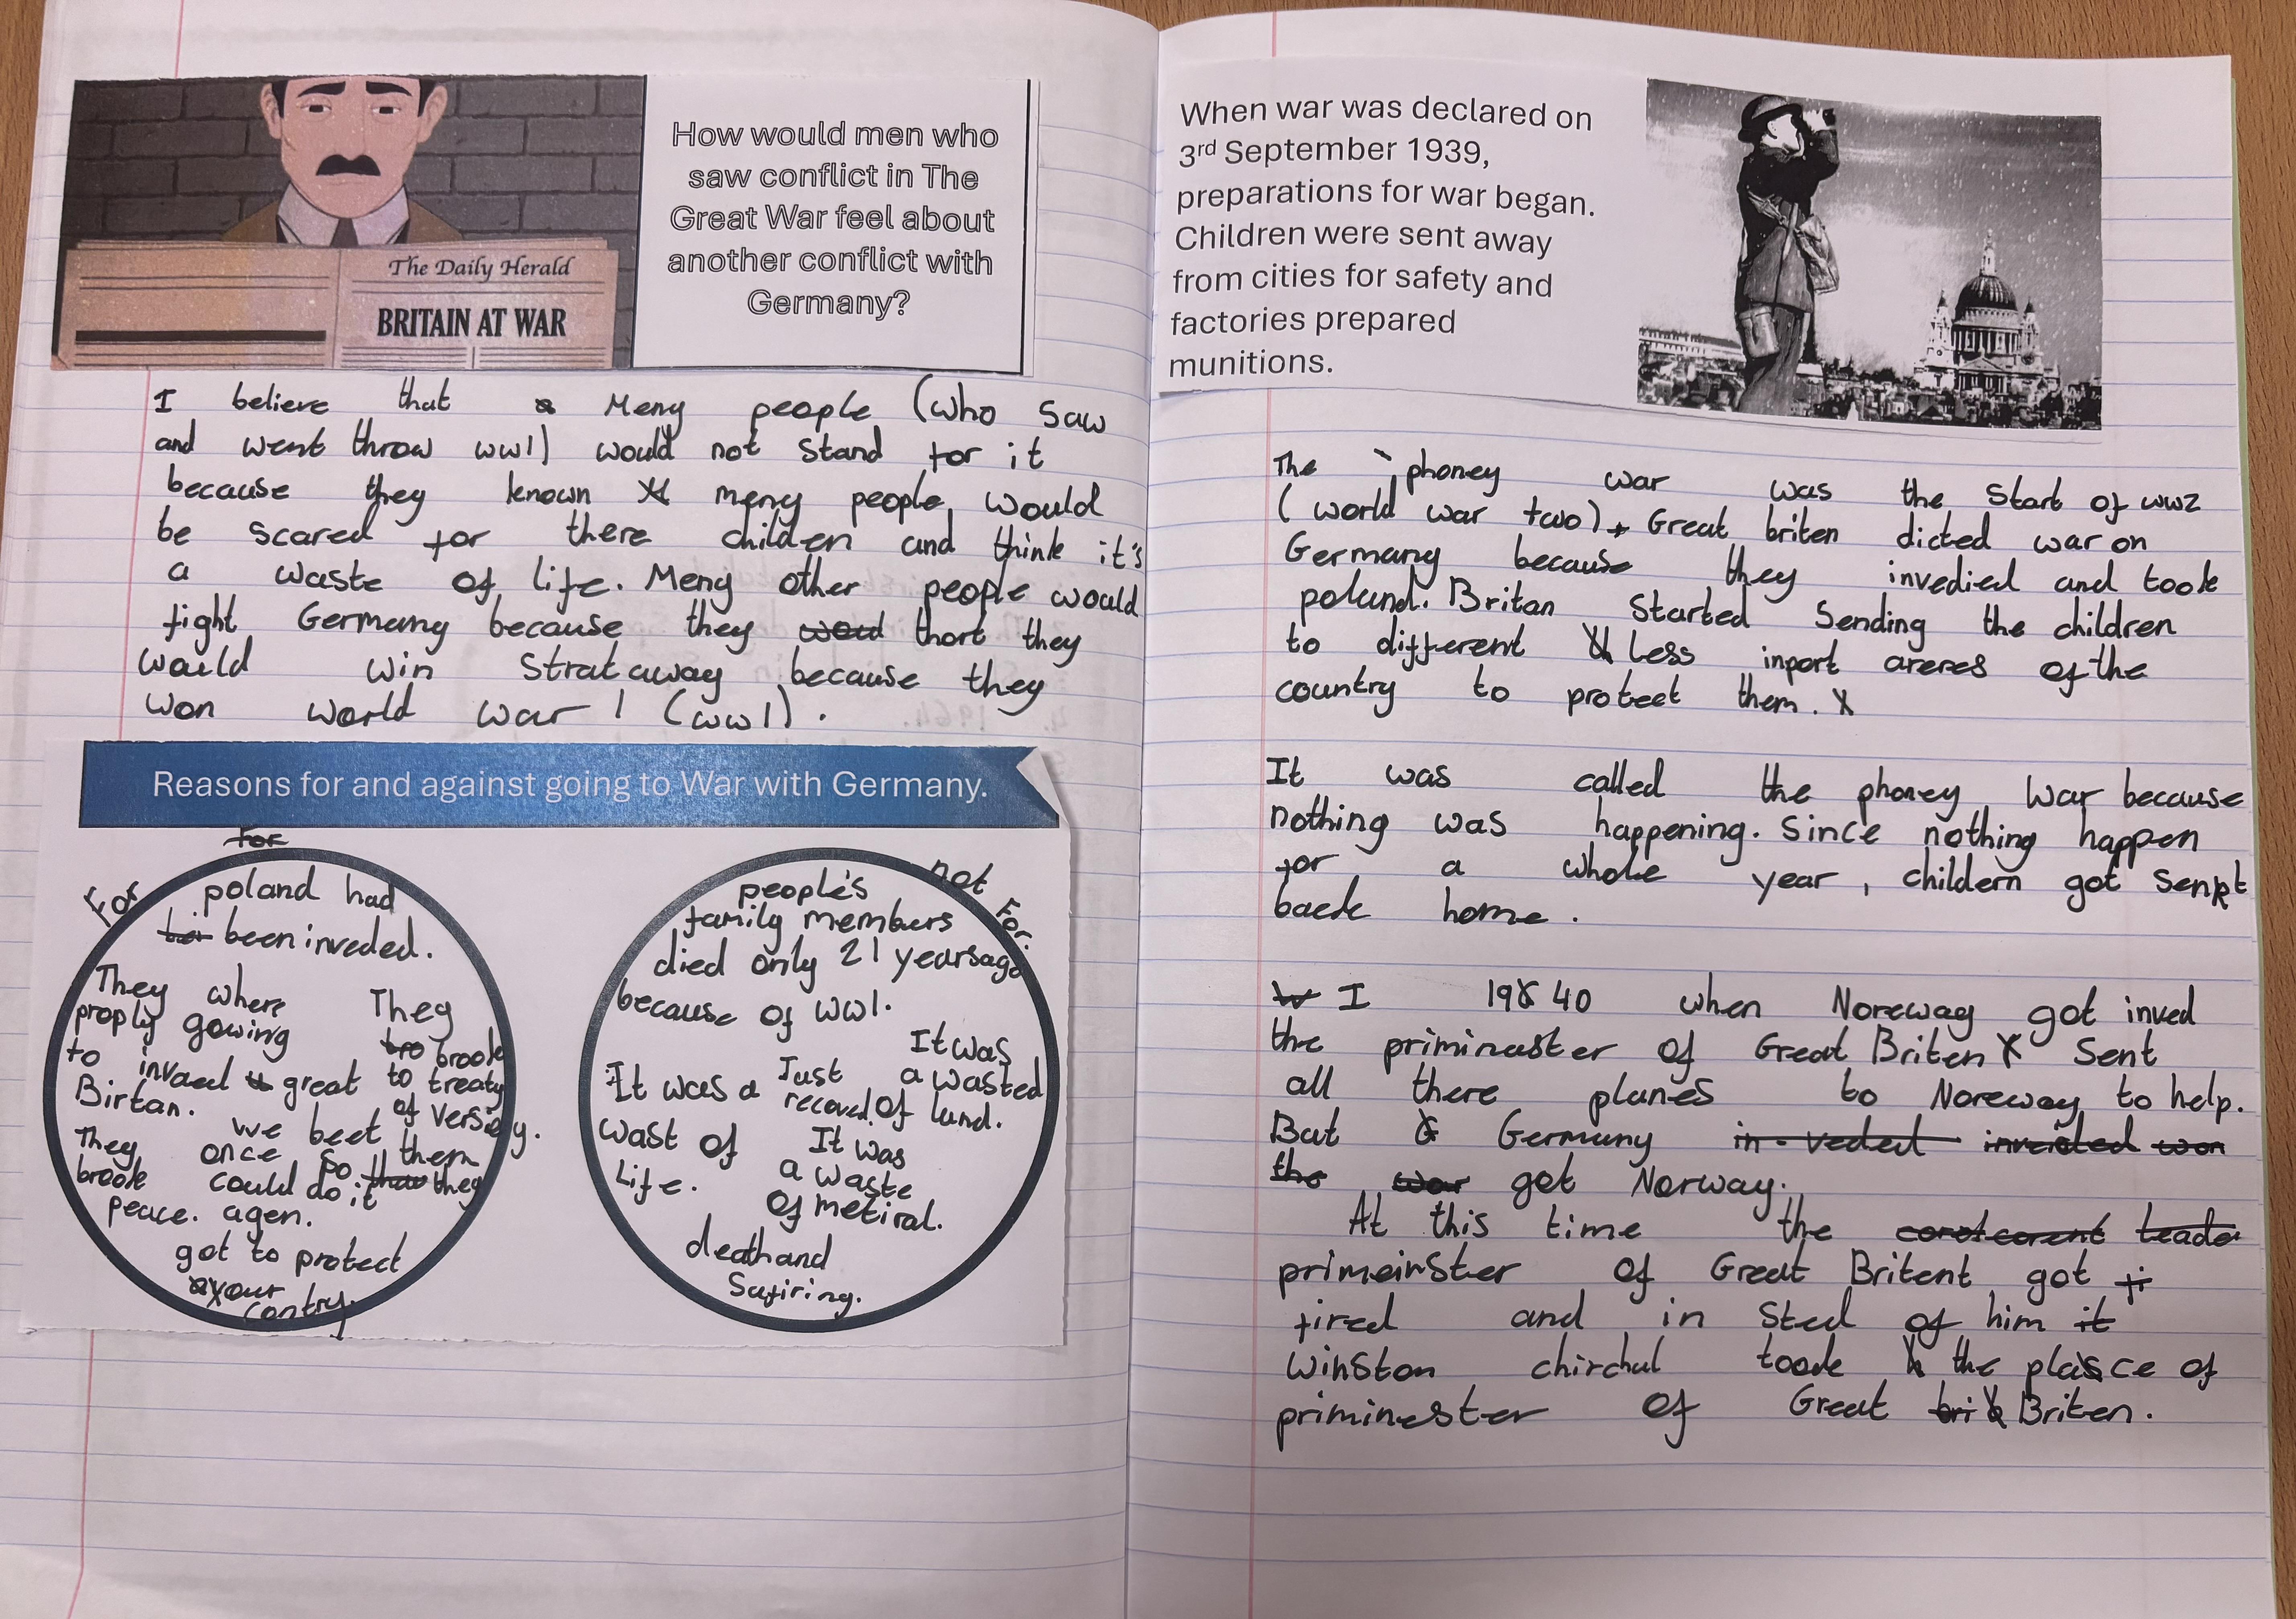 The Daily Herald
BRITAIN AT WAR
How would men who
saw conflict in The
Great War feel about
another conflict with
Germany?
I believe that Meny people (who saw
and went throw ww1) would not stand for it
because they known meny people would
be scared for there children and think it's
a waste of life. Meny other people would
fight Germany because they woud thort they
would win strataway because they
won world war 1 (ww1).
Reasons for and against going to War with Germany.
For
For
poland had
been inveded.
They where
proply gowing
to invaed great
Birtan.
They
bro brook
to treaty
of versiey.
They
brook
peace.
we beet them
once so they
could do it
agen.
got to protect
your
contry.
not For.
people's
family members
died only 21 years ago
because of ww1.
It was a
wast of
Life.
Just
recoved.
It was
a wasted
of lund.
It was
a waste
of metiral.
death and
Sufiring.
When war was declared on
3rd September 1939,
preparations for war began.
Children were sent away
from cities for safety and
factories prepared
munitions.
The phoney war was the start of ww2
(world war two). Great briten dicted war on
Germany because they invedied and took
poland. Britan started sending the children
to different less inport areres of the
country to protect them.
It was called the phoney war because
nothing was happening. since nothing happen
for a whole year, childern got sent
back home.
I 1940 when Noreway got inved
the priminaster of Great Briten sent
all there planes to Noreway to help.
But Germany in-veded inveided won
the war got Norway.
At this time the leade
primeinster of Great Britent got fi
fired and in sted of him it
winston chirchul took the plaisce of
priminester of Great bri Briten.